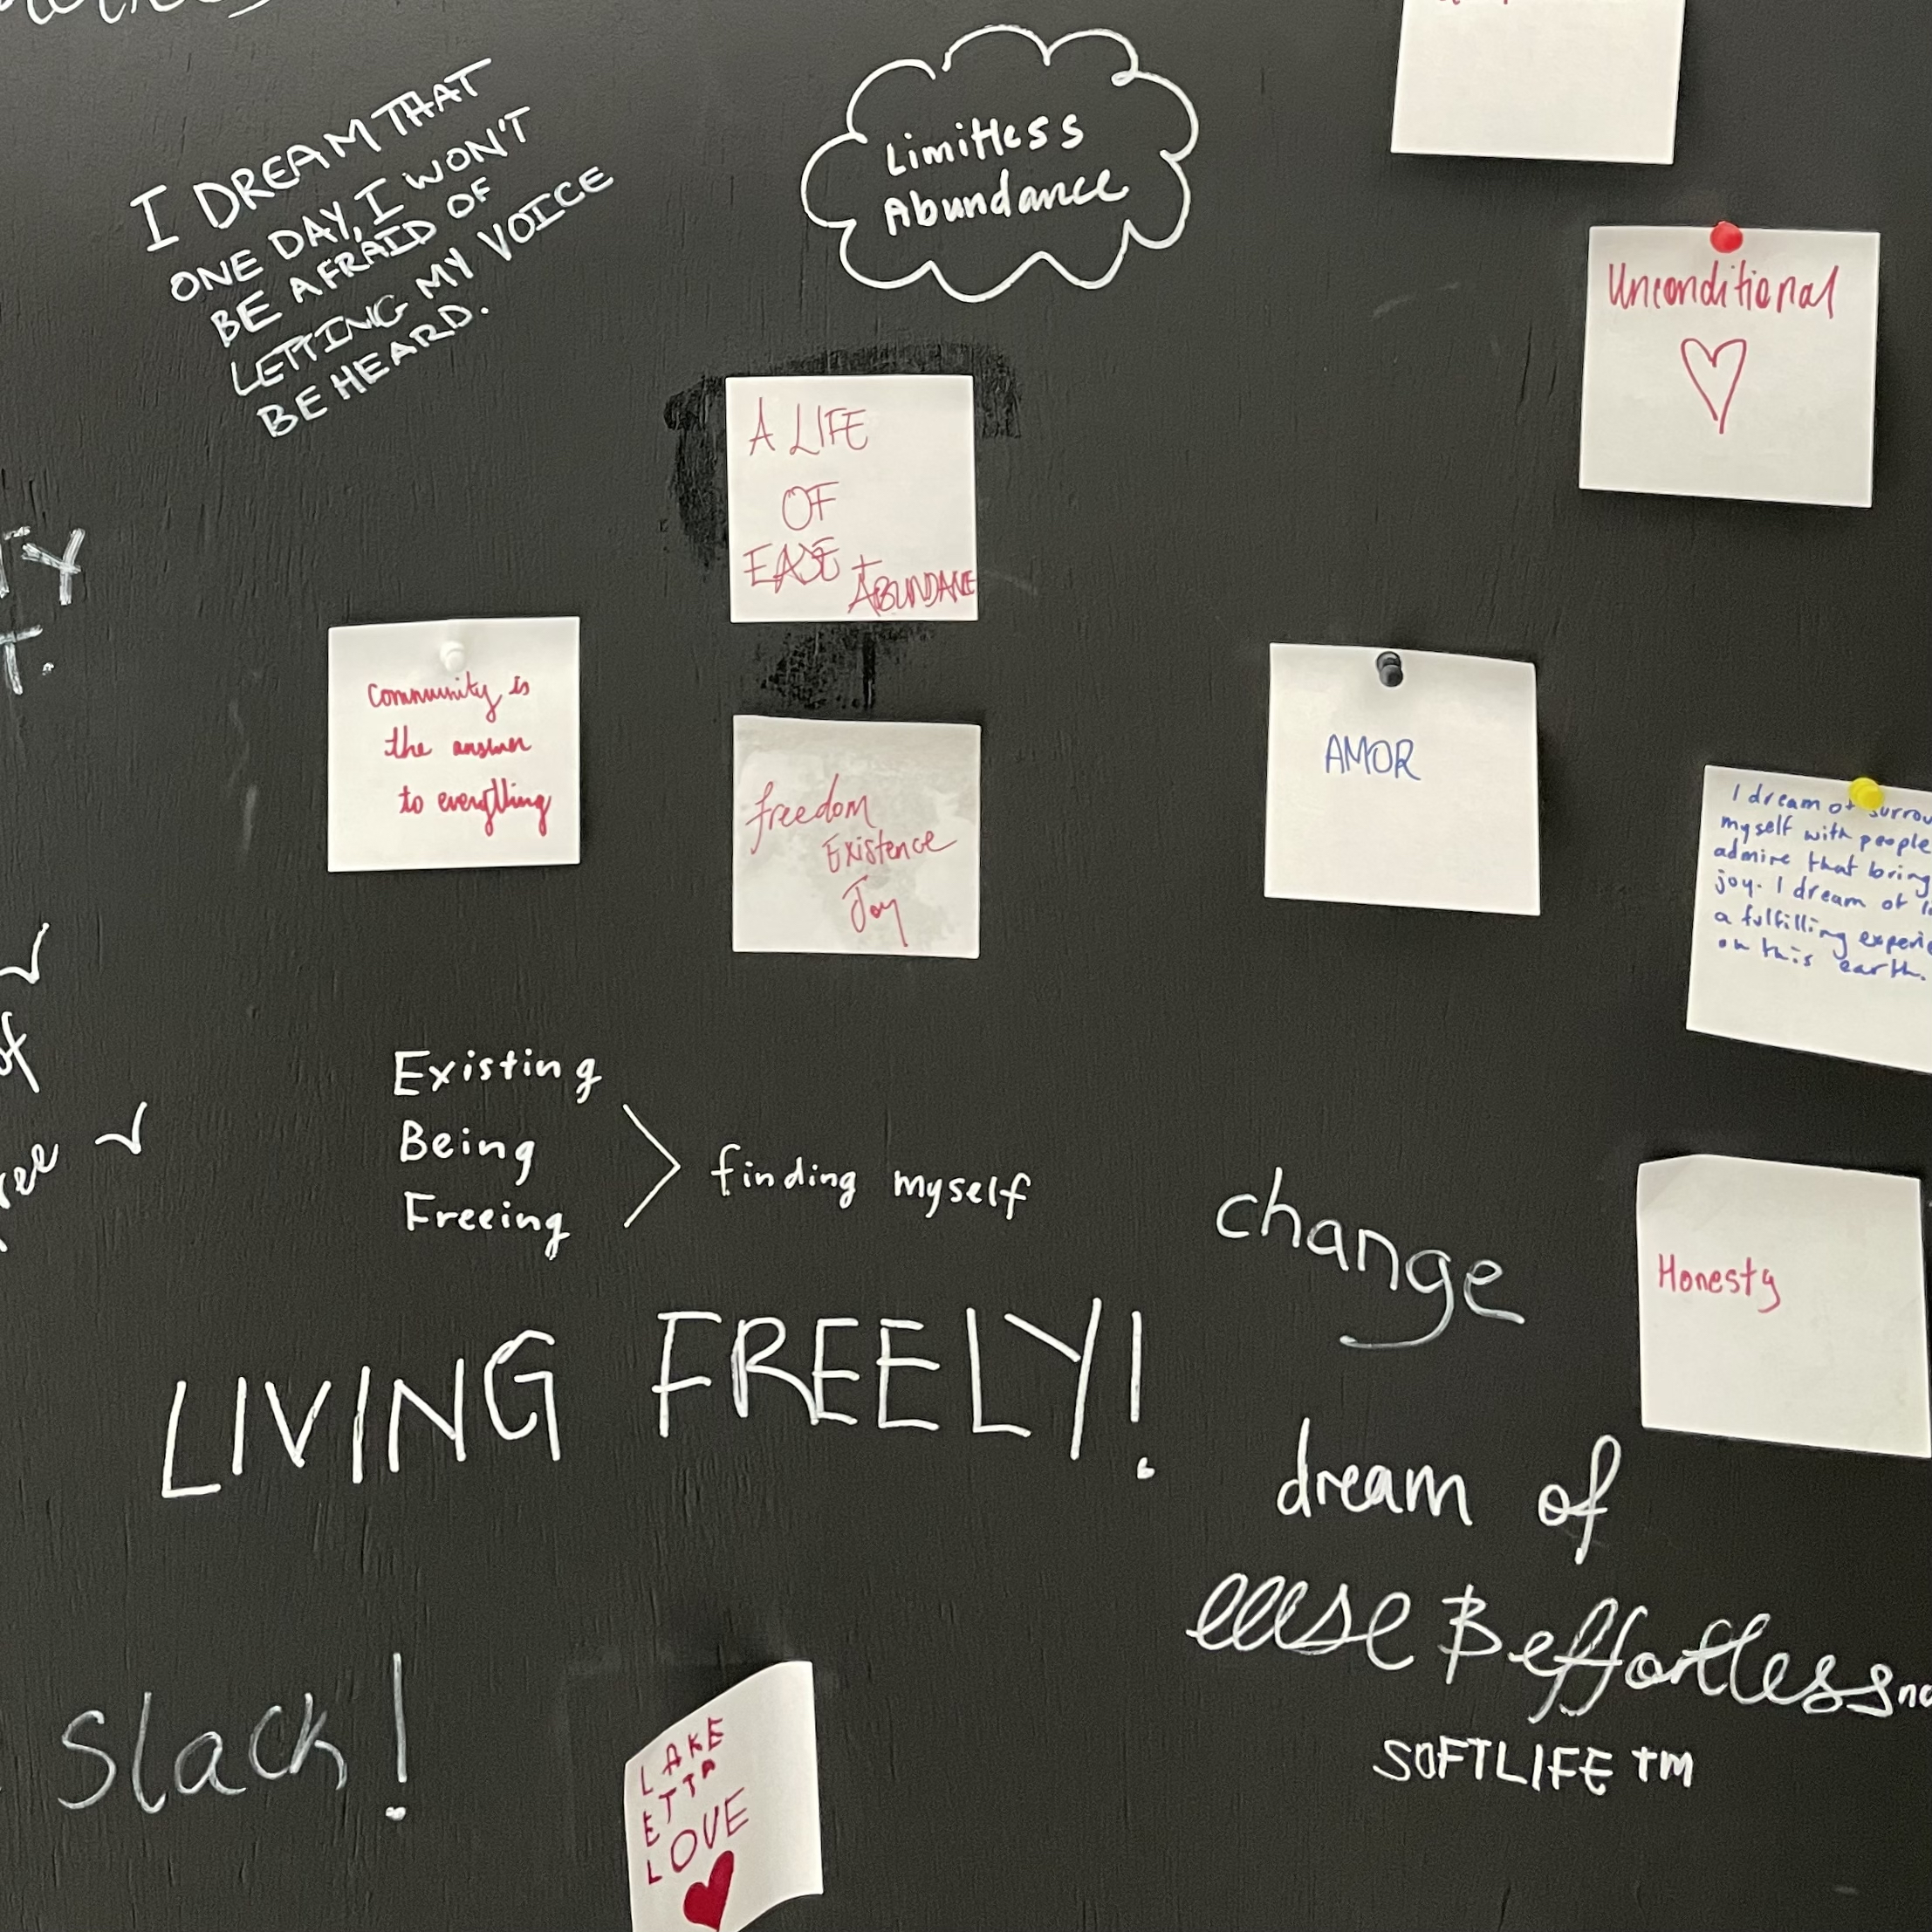 I DREAM THAT
ONE DAY, I WON'T
BE AFRAID OF
LETTING MY VOICE
BE HEARD.
Limitless
Abundance
Unconditional
A LIFE
OF
EASE +
ABUNDANCE
community is
the answer
to everything
freedom
Existence
Joy
AMOR
I dream of
myself with people
admire that bring
joy. I dream of
a fulfilling
on this earth.
of
Existing
Being
Freeing
finding myself
change
Honesty
LIVING FREELY!
dream of
ease & effortless
SOFTLIFE TM
Slack!
LAKE
ETTA
LOVE